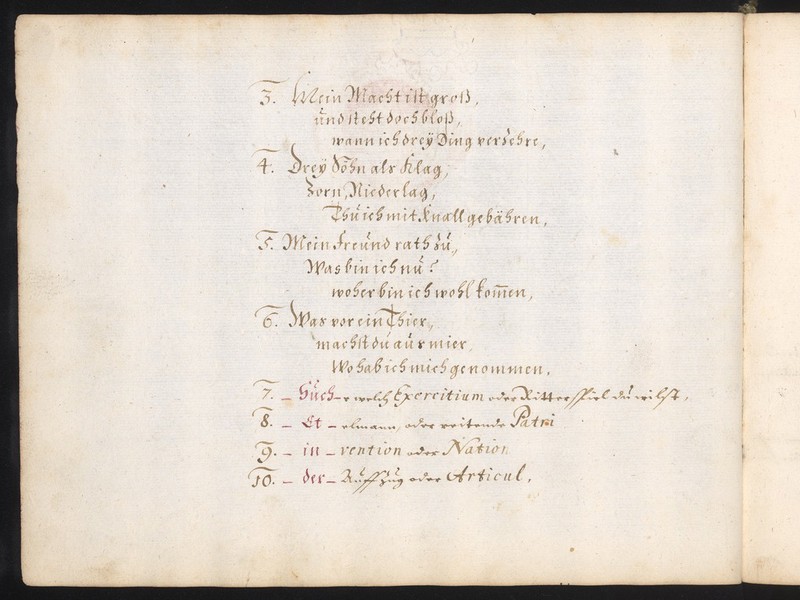 3. Mein Macht ist groß,
und steht doch bloß,
wann ich drey Ding verzehre,
4. Drey Söhn als Klag,
Zorn, Niederlag,
Thü ich mit Knall gebähren,
5. Mein Freünd rath zü,
Was bin ich nü?
woher bin ich wohl kom̄en,
6. Was vor ein Thier,
machst dü aüs mier,
Wo hab ich mich genommen.
7. - Süch - e welch Exercitium oder Ritterspiel dü wilst,
8. - Et - elmann, oder reitende Patri
9. - in - vention oder Nation
10. - der - Aüffzüg oder Articul.